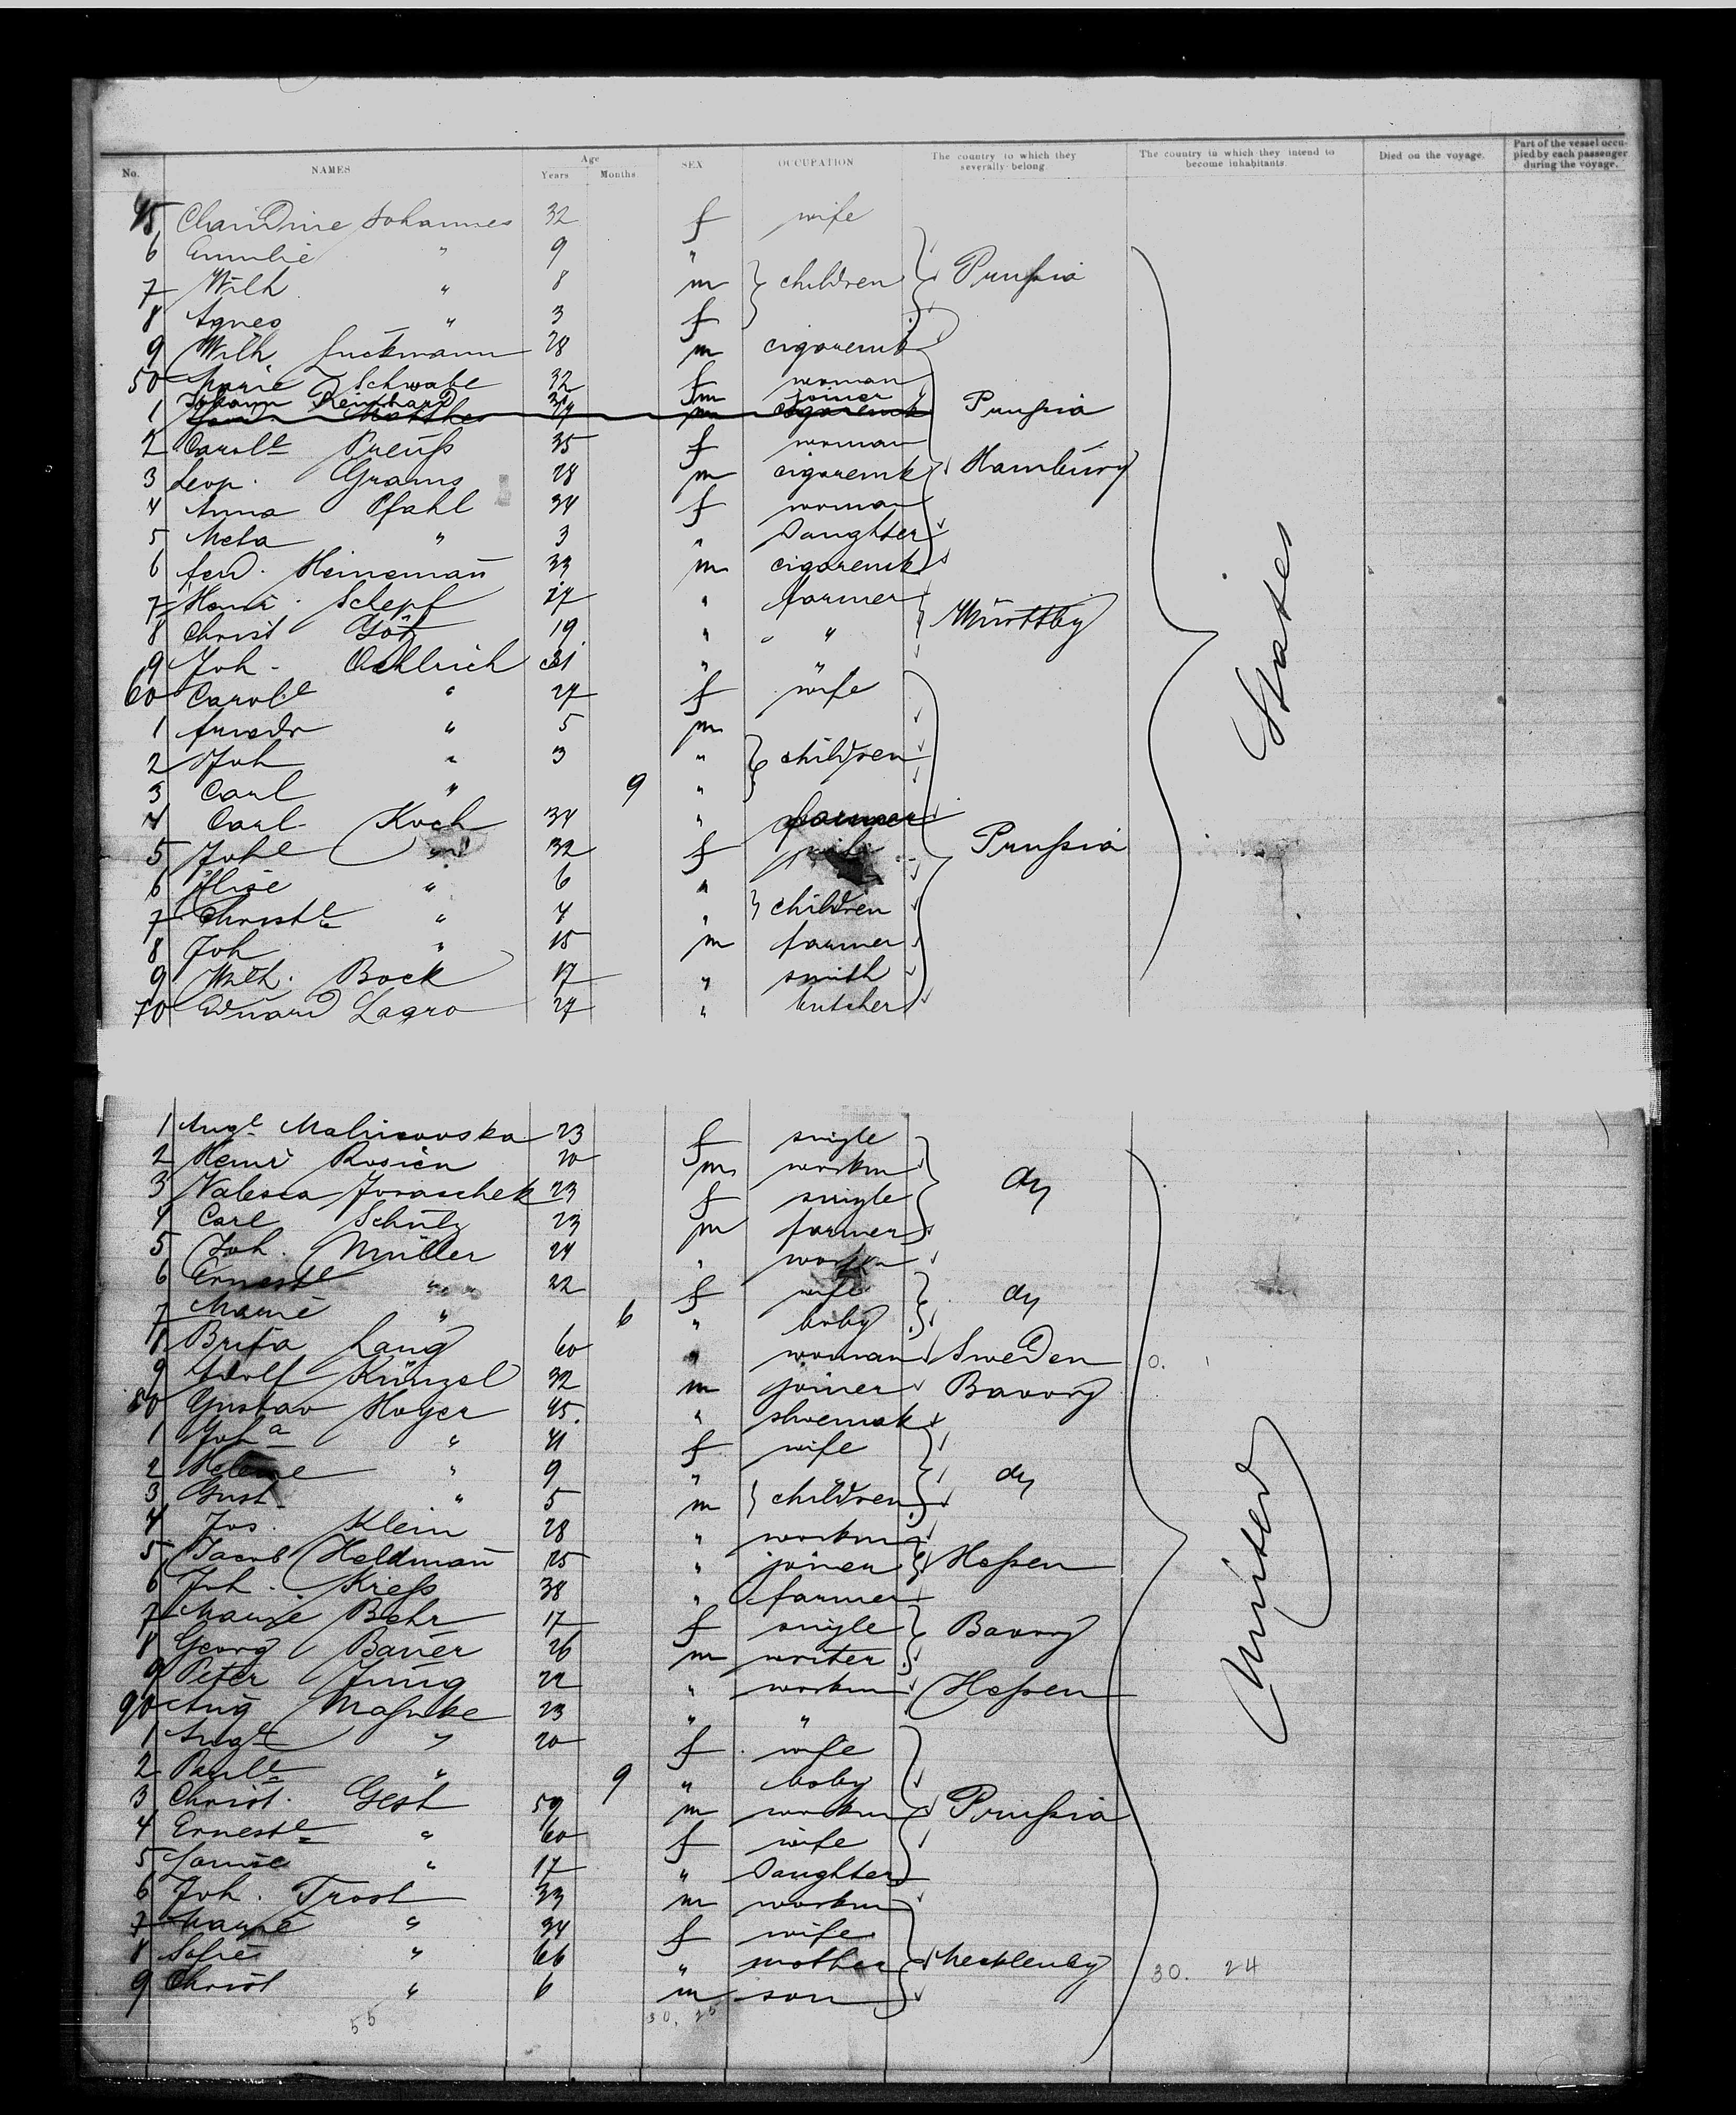 No. NAMES Age Years Months SEX OCCUPATION The country to which they severally belong. The country in which they intend to become inhabitants. Died on the voyage. Part of the vessel occupied by each passenger during the voyage.
45 Johannes 32 f wife
6 " 9 "
7 Wilh " 8 m children Prußia
8 Agnes " 3 f
9 Wilh Luckmann 28 m cigaremk
50 Marie Schwabe 32 f woman
Johann Reinhard m joiner
1 m cigaremk Prußia
2 Carol^e Preuß 35 f woman
3 Leop. Grams 28 m cigaremk Hamburg
4 Anna Pfahl 34 f woman
5 Meta " 3 " Daughter
6 Ferd. Heinemann 33 m cigaremk
7 Schepf 27 " farmer Württbg
8 Christ Götz 19 " "
9 Joh. Oehlrich 31 " "
60 Carol^e " 27 f wife
1 Friedr " 5 m
2 Joh " 3 " children
3 Carl " 9 "
4 Carl Koch 34 " farmer
5 Joh^e " 32 f Prußia
6 Elise " 6 "
7 Christ^e " 4 " children
8 Joh " 15 m farmer
9 Wilh. Bock 17 " smith
70 Eduard Lagro 27 " butcher
States
1 Aug^e Malinowska 23 f single
2 Henri Rosien 20 m workm
3 Valesca Joraschek 23 f single do
4 Carl Schulz 23 m farmer
5 Joh. Müller 24 " workm
6 Ernest^e " 22 f wife do
7 Marie " 6 " baby
8 Brita Lang 60 " woman Sweden 0.
9 Adolf Künzel 32 m joiner Bavory
80 Gustav Hoyer 45. " shoemak
1 Joh^a " 41 f wife
2 Helene " 9 " do
3 Gust. " 5 m children
4 Jos. Klein 28 " workm
5 Jacob Heldmann 25 " joiner Heßen
6 Joh. Kieß 38 " farmer
7 Marie Behr 17 f single Bavory
8 Georg Bauer 26 m writer
9 Peter Jung 22 " workm Heßen
90 Aug Maßnke 23 " "
1 Aug^e " 20 f wife
2 Paul^e " 9 " baby
3 Christ. Gest 59 m workm Prußia
4 Ernest^e " 60 f wife
5 Louise " 17 " Daughter
6 Joh. Trost 33 m workm
7 Marie " 34 f wife
8 Sofie " 66 " mother Mecklenbg 30. 24
9 Christ " 6 m son
United
55 30. 25